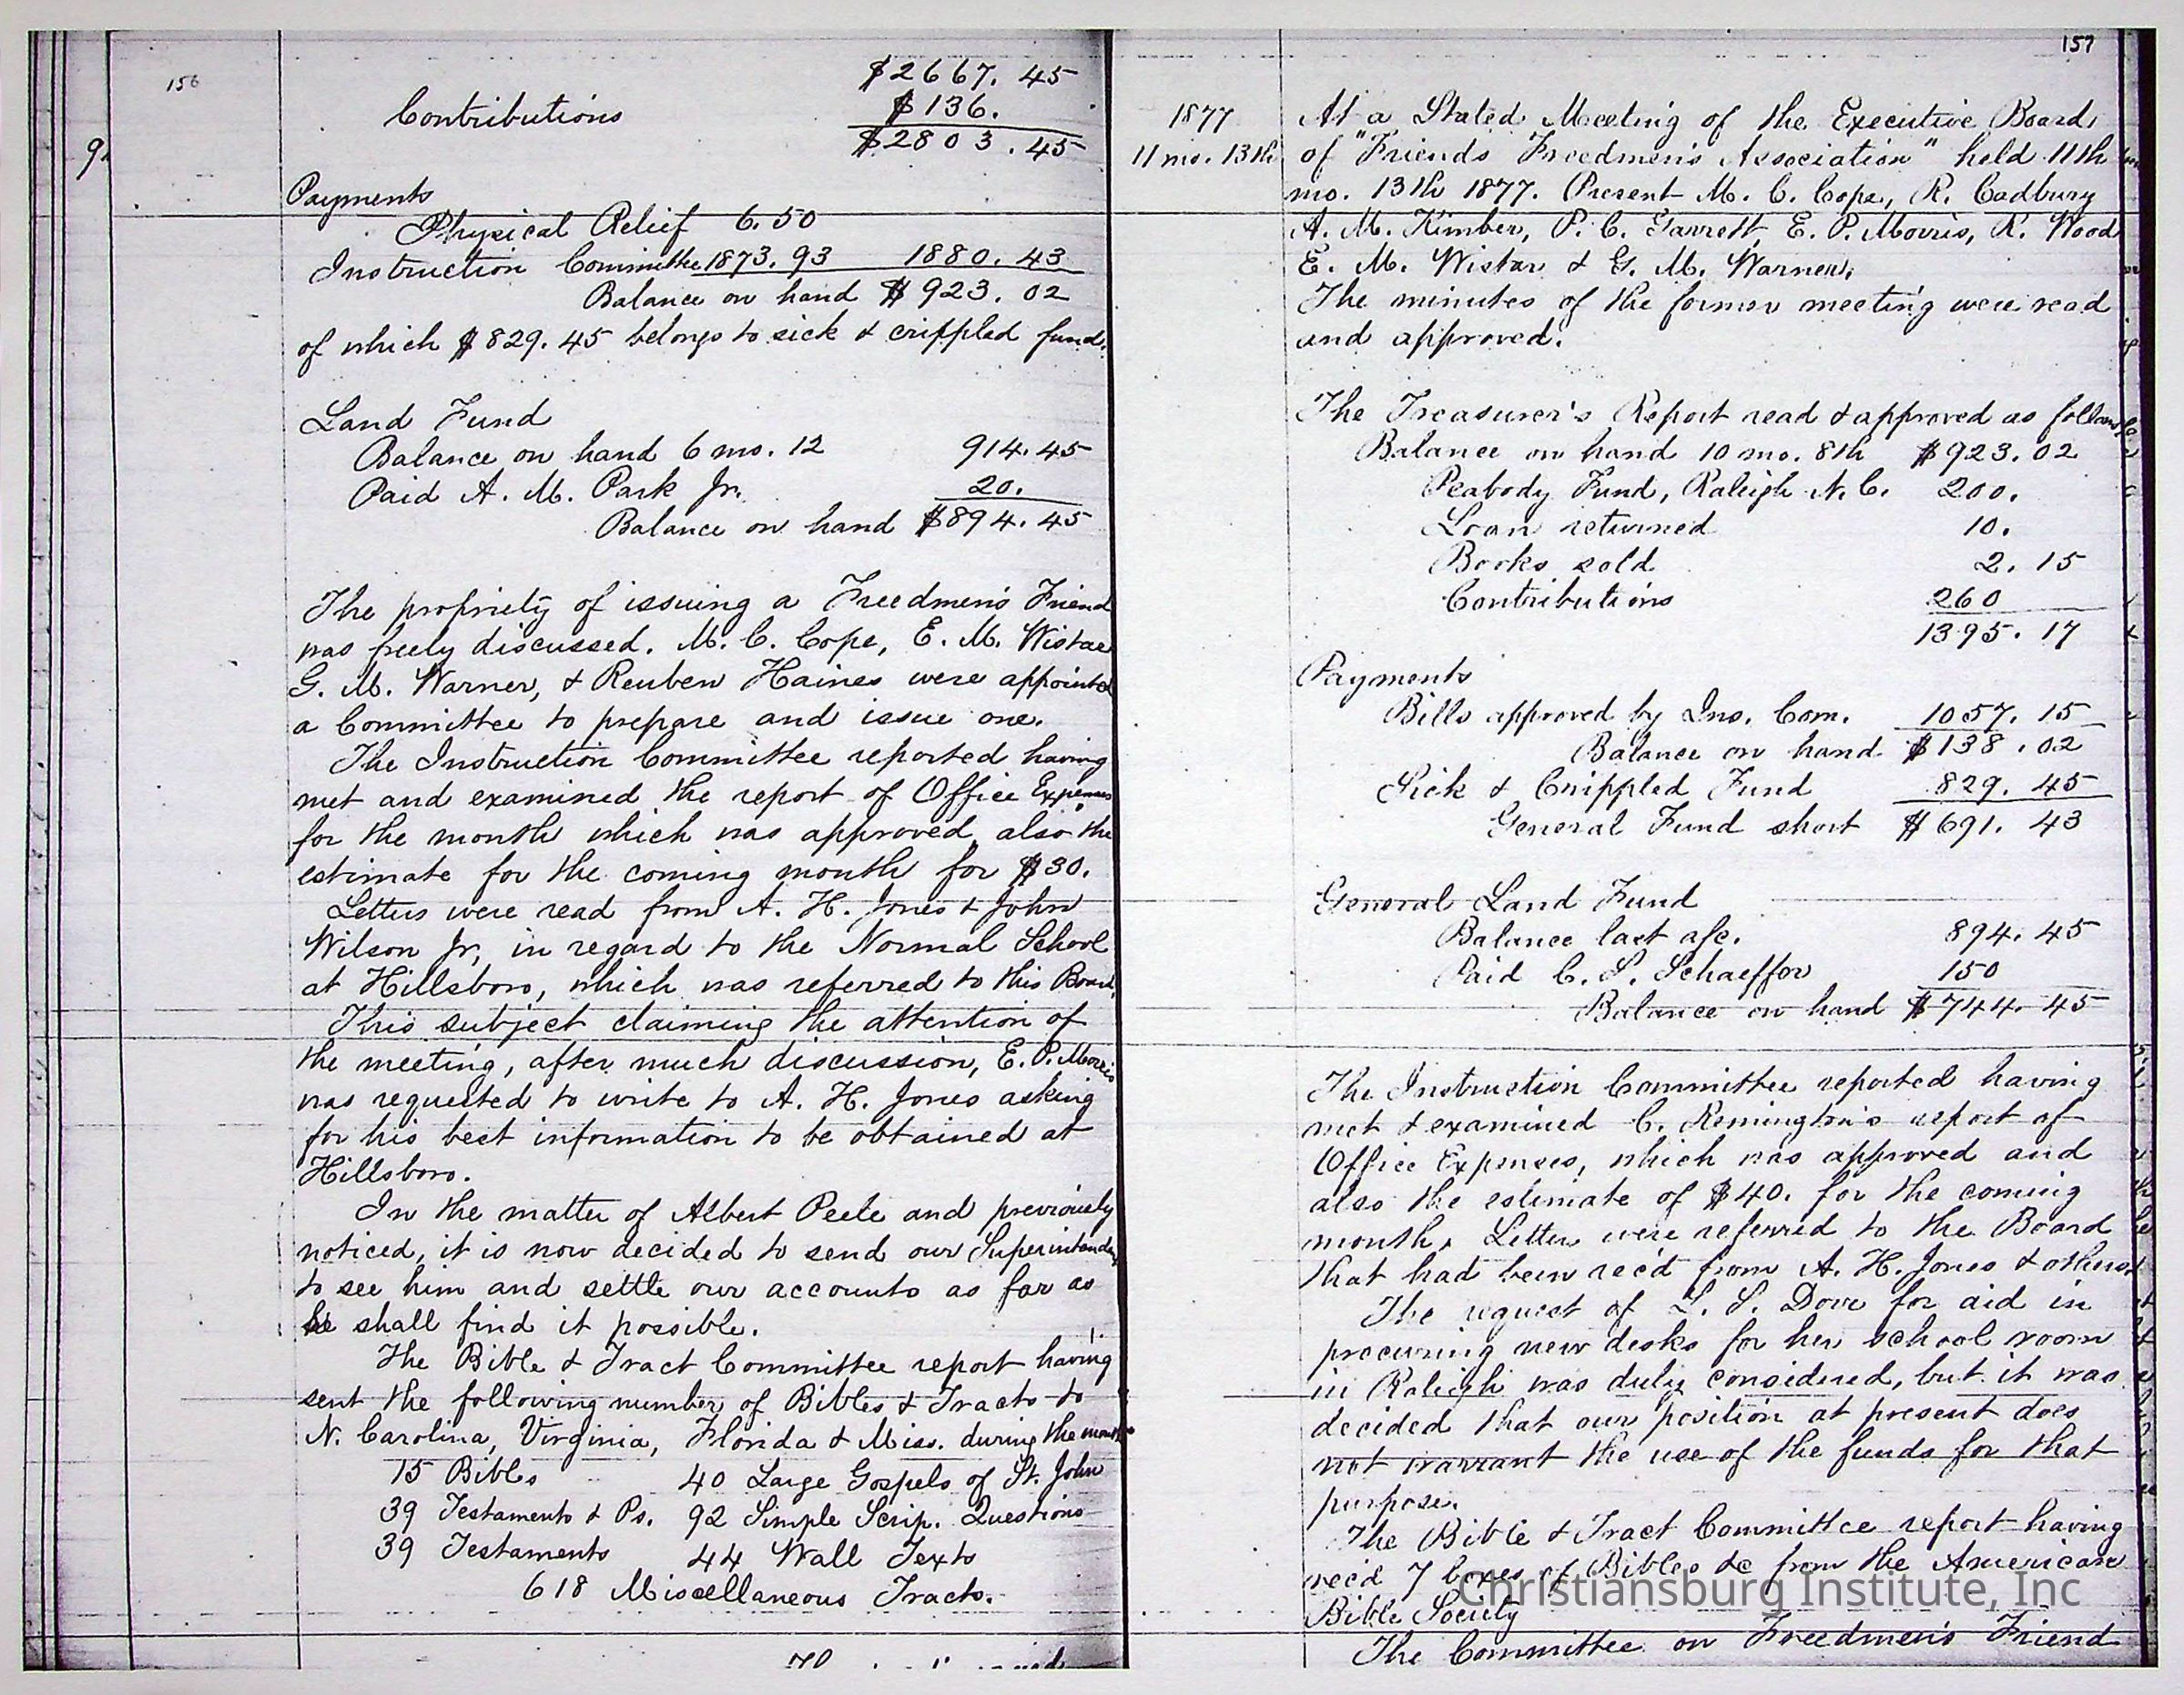 156
$2667. 45
Contributions $136.
$2803. 45
9
Payments
Physical Relief 6.50
Instruction Committee 1873. 93 1880. 43
Balance on hand $923. 02
of which $829. 45 belongs to sick & crippled fund.
Land Fund
Balance on hand 6 mo. 12 914. 45
Paid A. M. Park Jr. 20.
Balance on hand $894. 45
The propriety of issuing a Freedmen's Friend
was freely discussed. M. C. Cope, E. M. Wistar
G. M. Warner, & Reuben Haines were appointed
a Committee to prepare and issue one.
The Instruction Committee reported having
met and examined the report of Office Expenses
for the month which was approved, also the
estimate for the coming month for $30.
Letters were read from A. H. Jones & John
Wilson Jr, in regard to the Normal School
at Hillsboro, which was referred to this Board.
This subject claiming the attention of
the meeting, after much discussion, E. P. Morris
was requested to write to A. H. Jones asking
for his best information to be obtained at
Hillsboro.
In the matter of Albert Peele and previously
noticed, it is now decided to send our Superintendent
to see him and settle our accounts as far as
he shall find it possible.
The Bible & Tract Committee report having
sent the following number of Bibles & Tracts to
N. Carolina, Virginia, Florida & Miss. during the month
15 Bibles 40 Large Gospels of St. John
39 Testaments & Ps. 92 Simple Scrip. Questions
39 Testaments 44 Wall Texts
618 Miscellaneous Tracts.
157
1877 At a Stated Meeting of the Executive Board
11 mo. 13th of "Friends Freedmen's Association" held 11th
mo. 13th 1877. Present M. C. Cope, R. Cadbury
A. M. Kimber, P. C. Garrett, E. P. Morris, R. Wood
E. M. Wistar & G. M. Warner.
The minutes of the former meeting were read
and approved.
The Treasurer's Report read & approved as follows
Balance on hand 10 mo. 8th $923. 02
Peabody Fund, Raleigh N. C. 200.
Loan returned 10.
Books sold 2. 15
Contributions 260
1395. 17
Payments
Bills approved by Ins. Com. 1057. 15
Balance on hand $138. 02
Sick & Crippled Fund 829. 45
General Fund short $691. 43
General Land Fund
Balance last a/c. 894. 45
Paid C. S. Schaeffer 150
Balance on hand $744. 45
The Instruction Committee reported having
met & examined C. Remington's report of
Office Expenses, which was approved and
also the estimate of $40. for the coming
month. Letters were referred to the Board
that had been rec'd from A. H. Jones & others.
The request of L. S. Dove for aid in
procuring new desks for her school room
in Raleigh was duly considered, but it was
decided that our position at present does
not warrant the use of the funds for that
purpose.
The Bible & Tract Committee report having
rec'd 7 boxes of Bibles &c from the American
Bible Society
The Committee on Freedmen's Friend
Christiansburg Institute, Inc